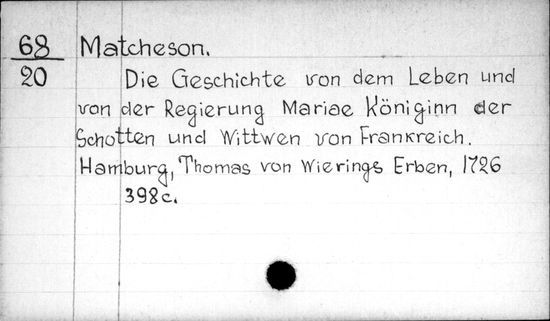 68 Matcheson.
20 Die Geschichte von dem Leben und
von der Regierung Mariae Königinn der
Schotten und Wittwen von Frankreich.
Hamburg, Thomas von Wierings Erben, 1726
398c.